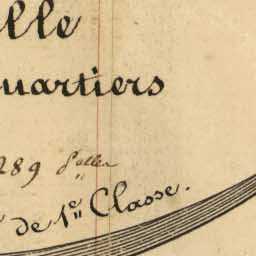 lle
uartiers
289
de 1re Classe.